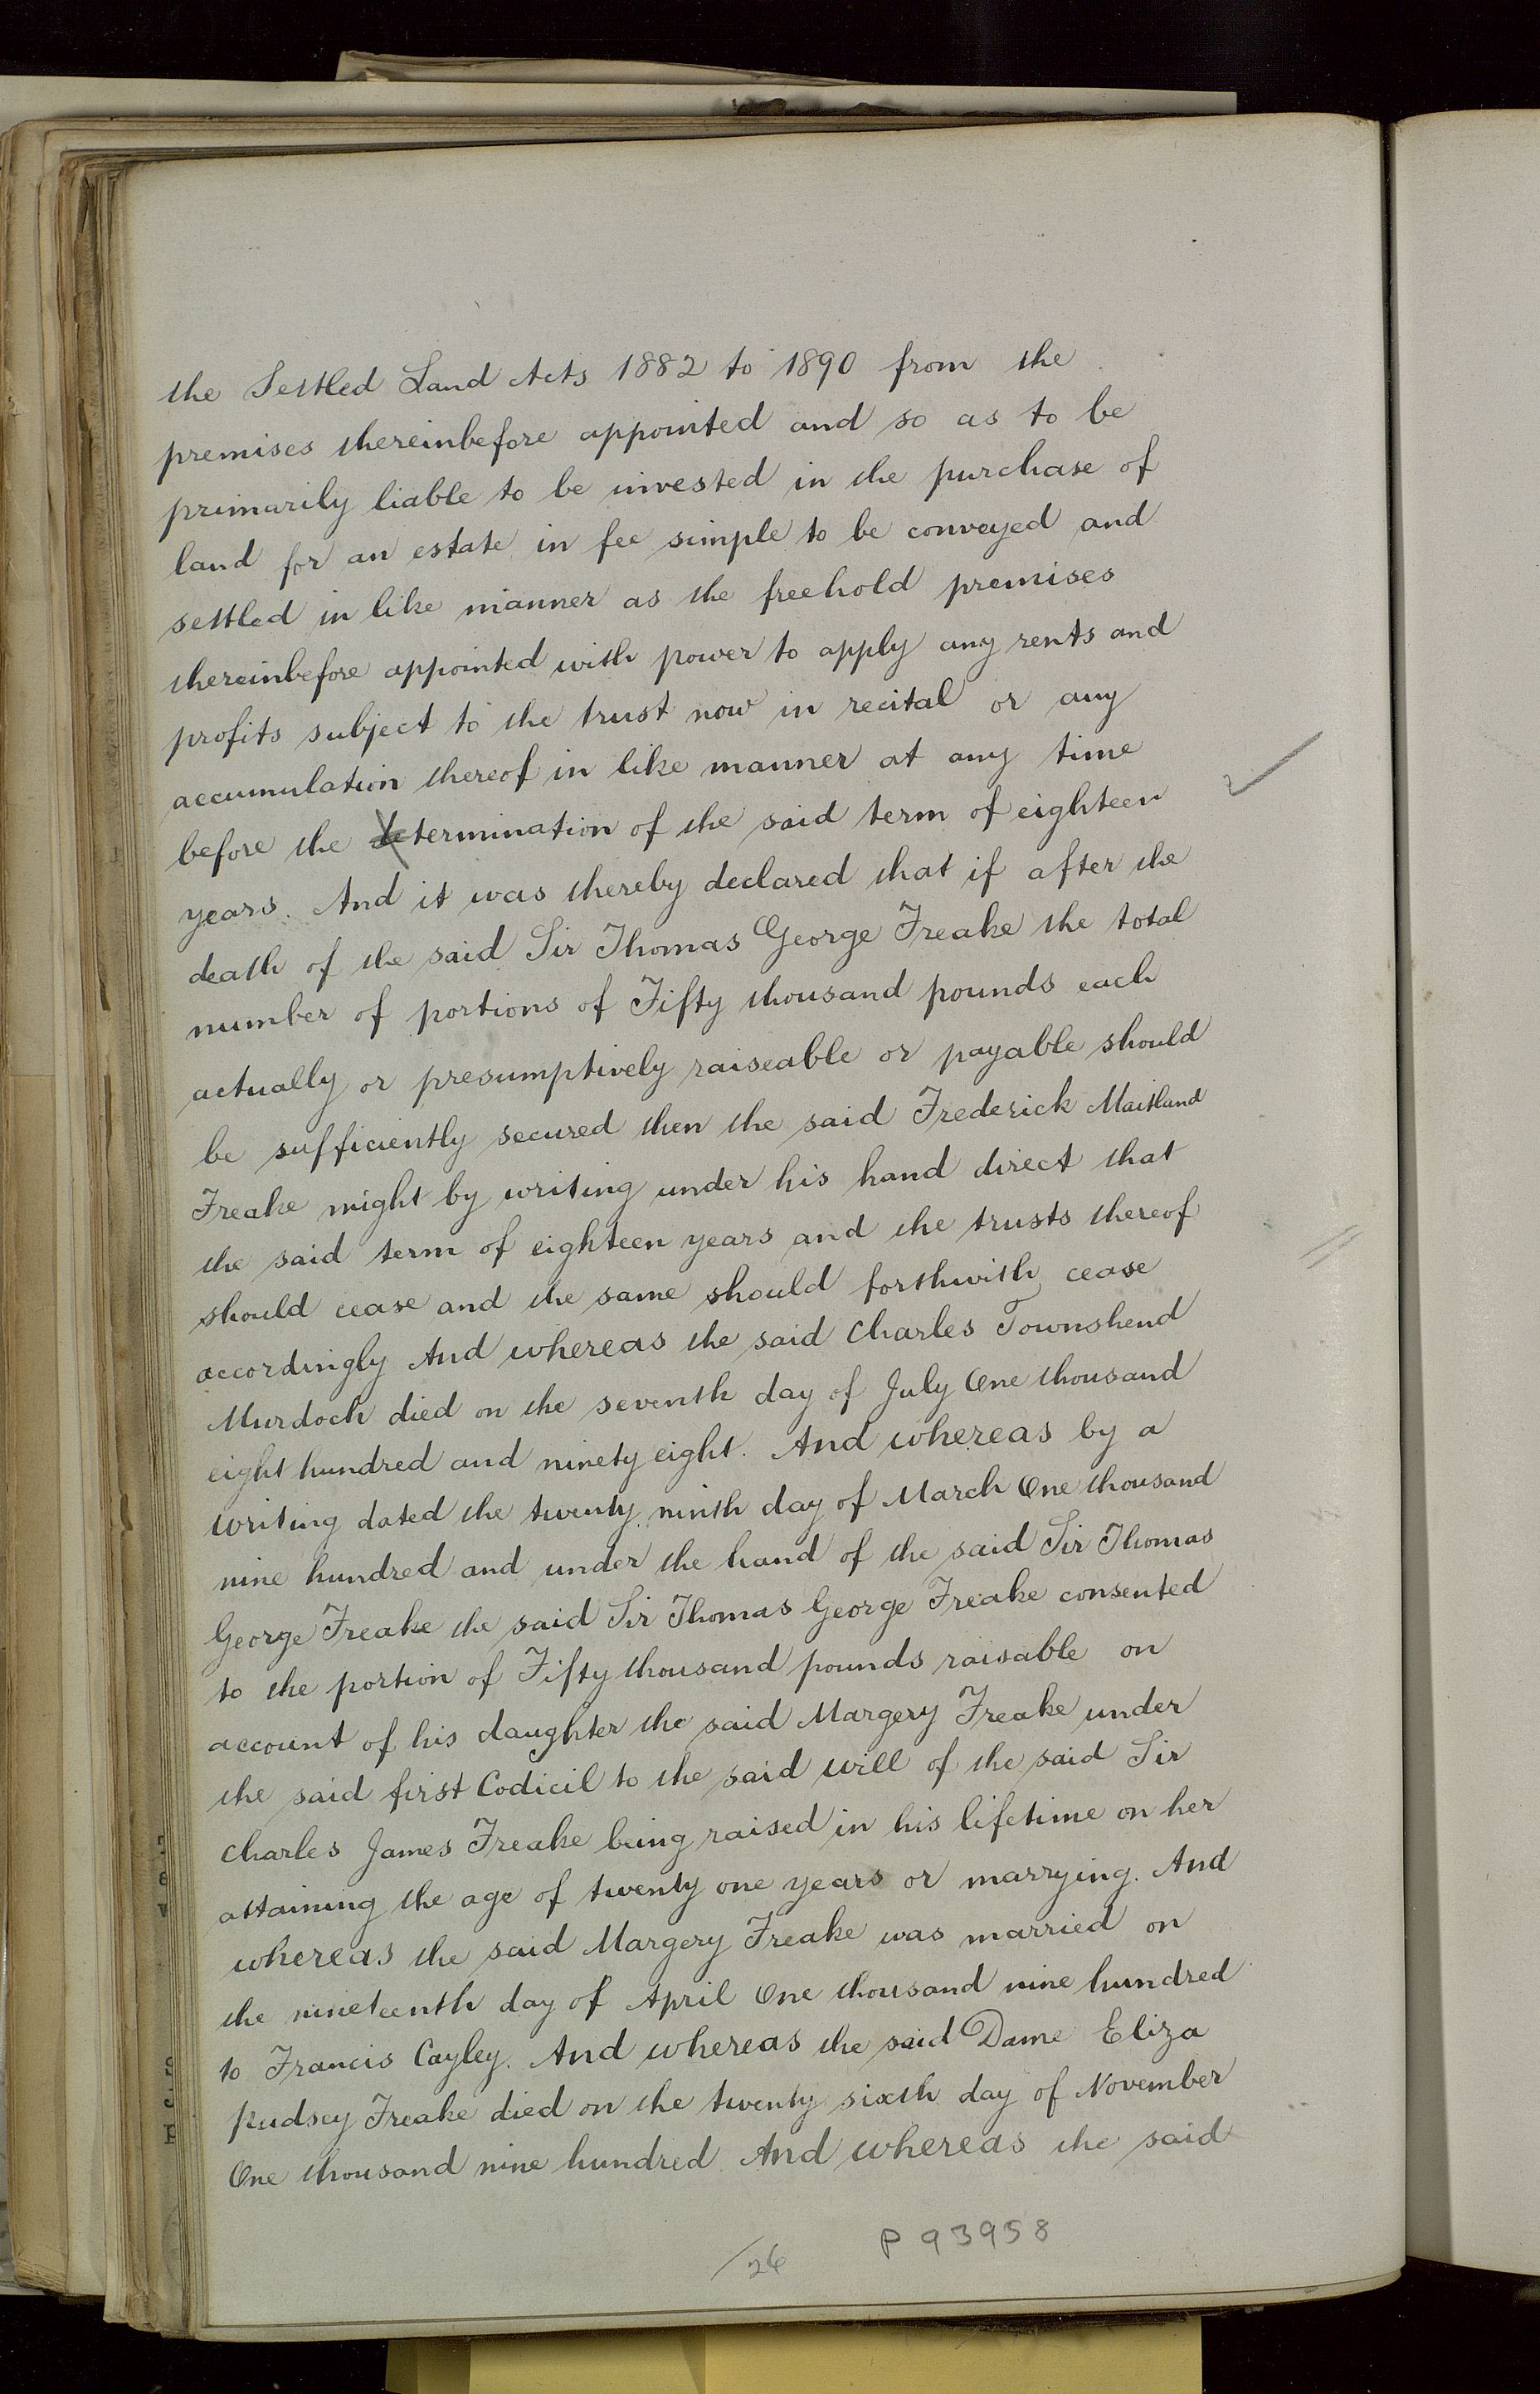 the Settled Land Acts 1882 to 1890 from the
premises thereinbefore appointed and so as to be
primarily liable to be invested in the purchase of
land for an estate in fee simple to be conveyed and
settled in like manner as the freehold premises
thereinbefore appointed with power to apply any rents and
profits subject to the trust now in recital or any
accumulation thereof in like manner at any time
before the determination of the said term of eighteen
years. And it was thereby declared that if after the
death of the said Sir Thomas George Freake the total
number of portions of Fifty thousand pounds each
actually or presumptively raiseable or payable should
be sufficiently secured then the said Frederick Maitland
Freake might by writing under his hand direct that
the said term of eighteen years and the trusts thereof
should cease and the same should forthwith cease
accordingly And whereas the said Charles Townshend
Murdoch died on the seventh day of July One thousand
eight hundred and ninety eight. And whereas by a
writing dated the twenty ninth day of March One thousand
nine hundred and under the hand of the said Sir Thomas
George Freake the said Sir Thomas George Freake consented
to the portion of Fifty thousand pounds raisable on
account of his daughter the said Margery Freake under
the said first Codicil to the said will of the said Sir
Charles James Freake being raised in his lifetime on her
attaining the age of twenty one years or marrying. And
whereas the said Margery Freake was married on
the nineteenth day of April One thousand nine hundred
to Francis Cayley. And whereas the said Dame Eliza
Pudsey Freake died on the twenty sixth day of November
One thousand nine hundred And whereas the said
/26 P 93958